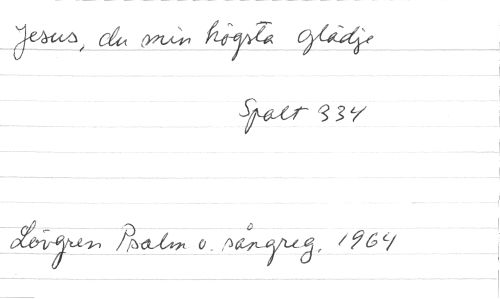 Jesus, du min högsta glädje
Spalt 334
Lövgren Psalm o. sångreg. 1964